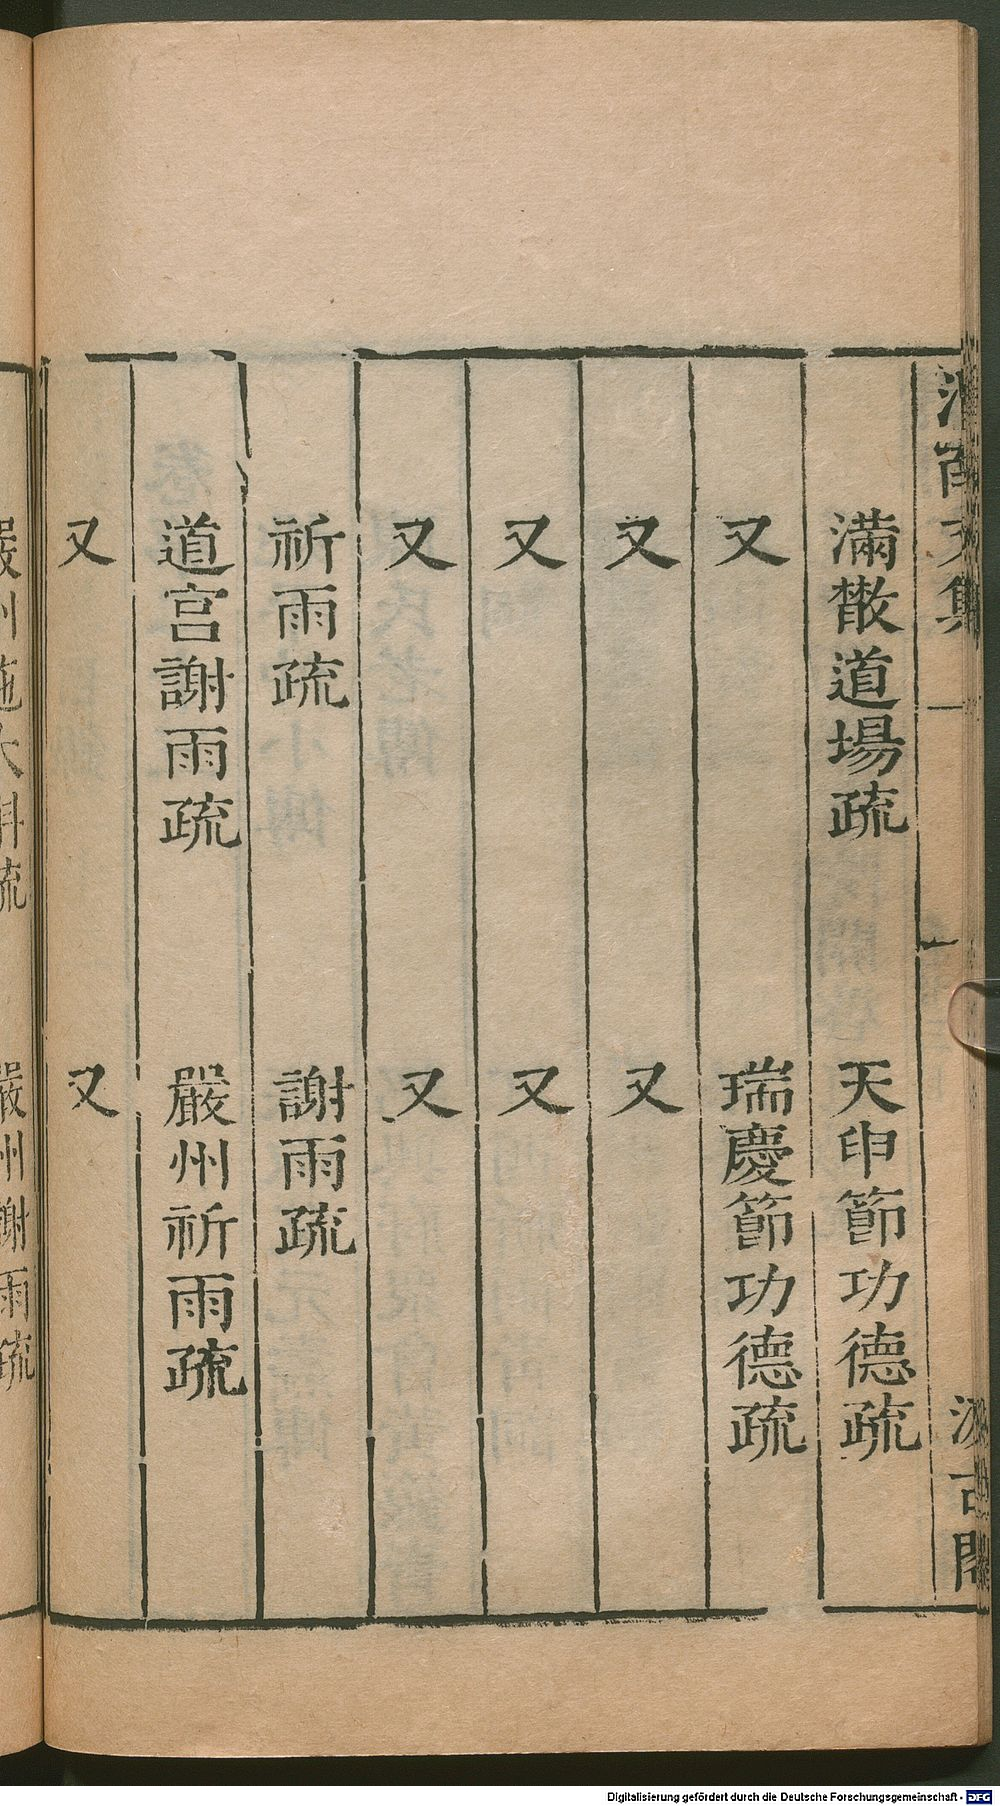 滿散道場疏　天申節功德疏
又　瑞慶節功德疏
又　又
又　又
又　又
祈雨疏　謝雨疏
道宮謝雨疏　嚴州祈雨疏
又　又
嚴州謝雨疏
Digitalisierung gefördert durch die Deutsche Forschungsgemeinschaft - DFG